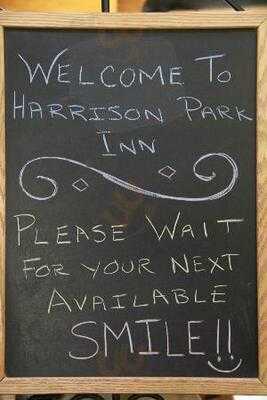 WELCOME TO
HARRISON PARK
INN
PLEASE WAIT
FOR YOUR NEXT
AVAILABLE
SMILE!!